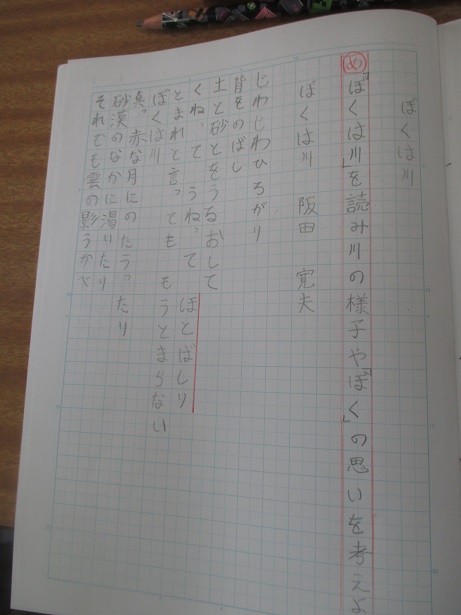 ぼくは川
め 「ぼくは川」を読み川の様子や「ぼく」の思いを考えよ
ぼくは川 阪田 寛夫
じわじわひろがり
背をのばし
土と砂とをうるおして
くねって うねって ほとばしり
とまれと言っても もうとまらない
ぼくは川
真っ赤な月にのたうったり
砂漠のなかに渇いたり
それでも雲の影うかべ